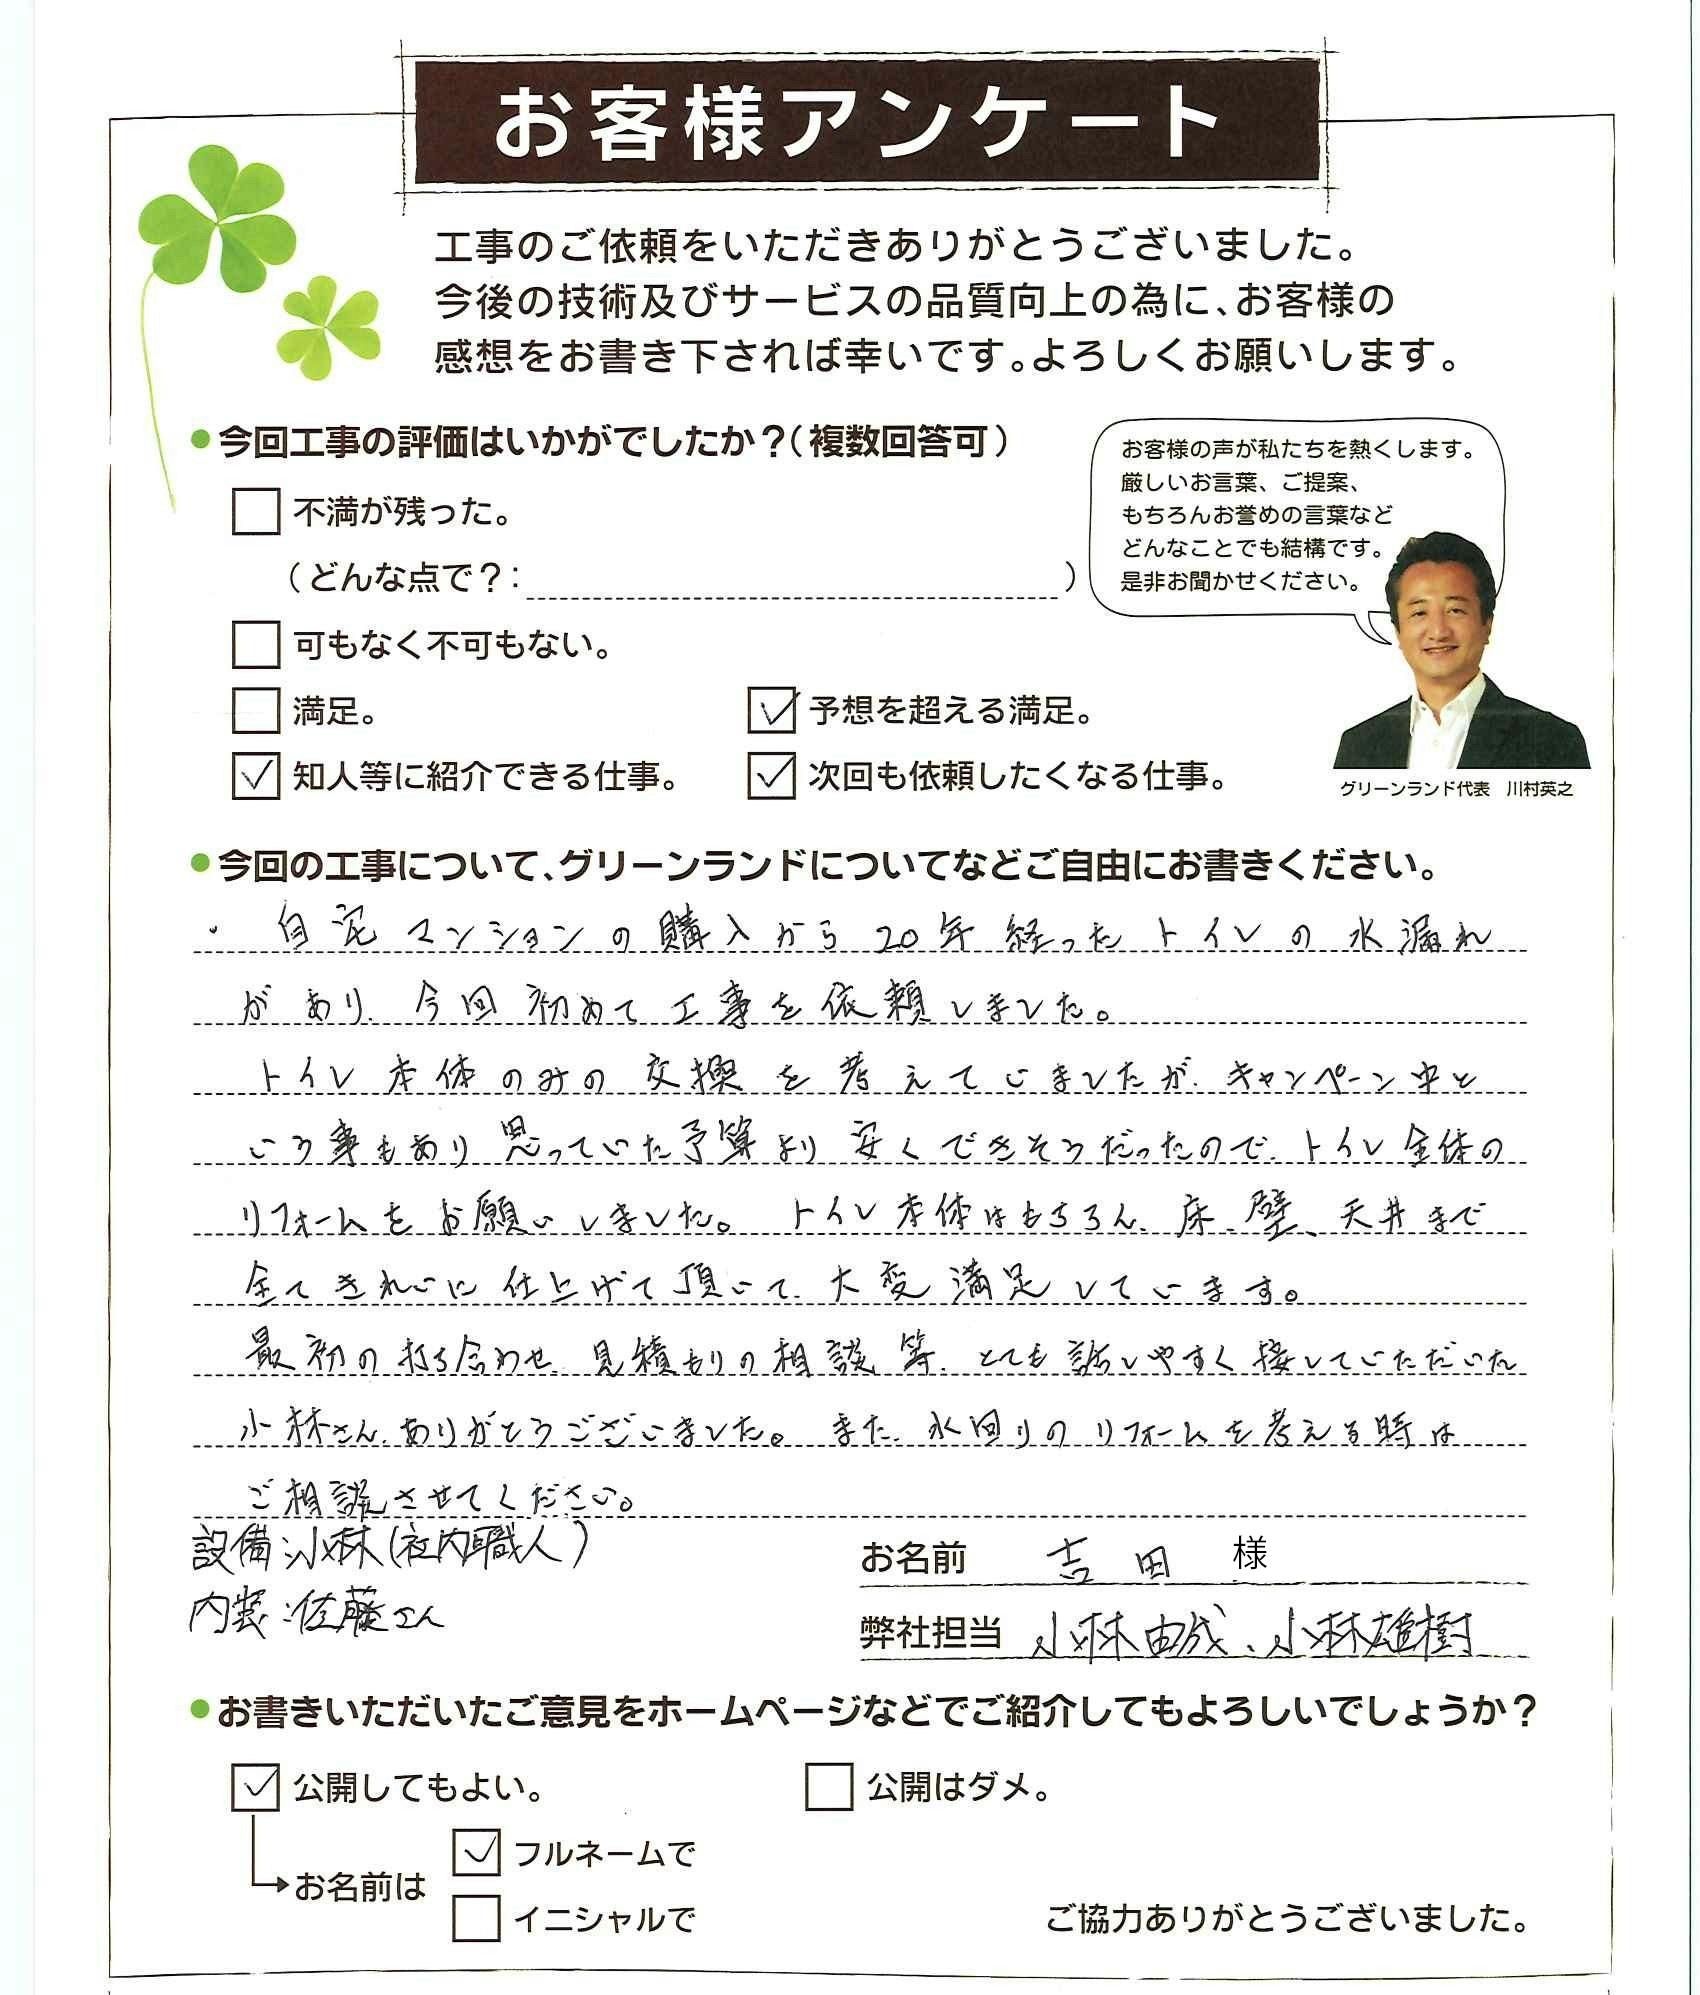 お客様アンケート
工事のご依頼をいただきありがとうございました。
今後の技術及びサービスの品質向上の為に、お客様の
感想をお書き下されば幸いです。よろしくお願いします。
●今回工事の評価はいかがでしたか?(複数回答可)
不満が残った。
(どんな点で?: )
可もなく不可もない。
満足。
予想を超える満足。
知人等に紹介できる仕事。
次回も依頼したくなる仕事。
お客様の声が私たちを熱くします。
厳しいお言葉、ご提案、
もちろんお誉めの言葉など
どんなことでも結構です。
是非お聞かせください。
グリーンランド代表 川村英之
●今回の工事について、グリーンランドについてなどご自由にお書きください。
・ 自宅マンションの購入から20年経ったトイレの水漏れ
があり、今回初めて工事を依頼しました。
トイレ本体のみの交換を考えていましたが、キャンペーン中と
いう事もあり思っていた予算より安くできそうだったので、トイレ全体の
リフォームをお願いしました。トイレ本体はもちろん、床、壁、天井まで
全てきれいに仕上げて頂いて、大変満足しています。
最初の打ち合わせ、見積もりの相談等、とても話しやすく接していただいた
小林さん、ありがとうございました。また、水回りのリフォームを考える時は
ご相談させてください。
設備:小林(社内職人)
内装:佐藤さん
お名前 吉田 様
弊社担当 小林由成、小林雄樹
●お書きいただいたご意見をホームページなどでご紹介してもよろしいでしょうか?
公開してもよい。
公開はダメ。
お名前は
フルネームで
イニシャルで
ご協力ありがとうございました。